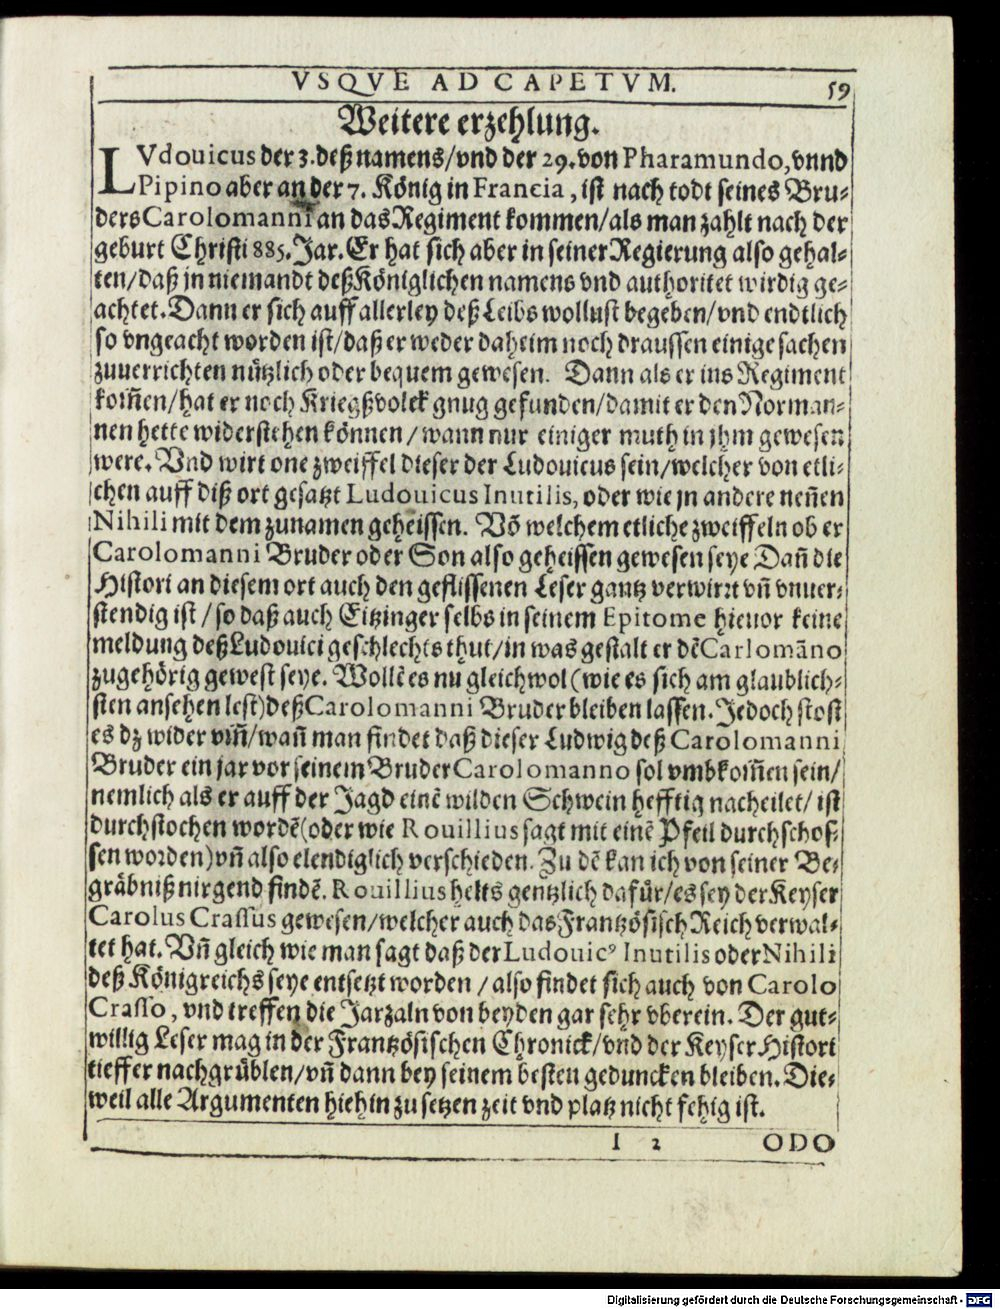 VSQVE AD CAPETVM. 59
Weitere erzehlung.
LVdouicus der 3. deß namens/vnd der 29. von Pharamundo, vnnd
Pipino aber an der 7. König in Francia, ist nach todt seines Bru-
ders Carolomanni an das Regiment kommen/als man zahlt nach der
geburt Christi 885. Jar. Er hat sich aber in seiner Regierung also gehal-
ten/daß jn niemandt deß Königlichen namens vnd authoritet wirdig ge-
achtet. Dann er sich auff allerley deß Leibs wollust begeben/vnd endtlich
so vngeacht worden ist/daß er weder daheim noch draussen einige sachen
zuuerrichten nützlich oder bequem gewesen. Dann als er ins Regiment
kom̃en/hat er noch Kriegßvolck gnug gefunden/damit er den Norman-
nen hette widerstehen können/wann nur einiger muth in jhm gewesen
were. Vnd wirt one zweiffel dieser der Ludouicus sein/welcher von etli-
chen auff diß ort gesatzt Ludouicus Inutilis, oder wie jn andere neñen
Nihili mit dem zunamen geheissen. Võ welchem etliche zweiffeln ob er
Carolomanni Bruder oder Son also geheissen gewesen seye Dañ die
Histori an diesem ort auch den geflissenen Leser gantz verwirrt vñ vnuer-
stendig ist/so daß auch Eitzinger selbs in seinem Epitome hieuor keine
meldung deß Ludouici geschlechts thut/in was gestalt er dẽ Carlomãno
zugehörig gewest seye. Wollẽ es nu gleichwol (wie es sich am glaublich-
sten ansehen lest) deß Carolomanni Bruder bleiben lassen. Jedoch stost
es dz wider vm̃/wañ man findet daß dieser Ludwig deß Carolomanni
Bruder ein jar vor seinem Bruder Carolomanno sol vmbkom̃en sein/
nemlich als er auff der Jagd einẽ wilden Schwein hefftig nacheilet/ist
durchstochen wordẽ (oder wie Rouillius sagt mit einẽ Pfeil durchschos-
sen worden) vñ also elendiglich verschieden. Zu dẽ kan ich von seiner Be-
gräbniß nirgend findẽ. Rouillius helts gentzlich dafür/es sey der Keyser
Carolus Crassus gewesen/welcher auch das Frantzösisch Reich verwal-
tet hat. Vñ gleich wie man sagt daß der Ludouicꝰ Inutilis oder Nihili
deß Königreichs seye entsetzt worden/also findet sich auch von Carolo
Crasso, vnd treffen die Jarzaln von beyden gar sehr vberein. Der gut-
willig Leser mag in der Frantzösischen Chronick/vnd der Keyser Histori
tieffer nachgrüblen/vñ dann bey seinem besten geduncken bleiben. Die-
weil alle Argumenten hiehin zu setzen zeit vnd platz nicht fehig ist.
I 2 ODO
Digitalisierung gefördert durch die Deutsche Forschungsgemeinschaft - DFG